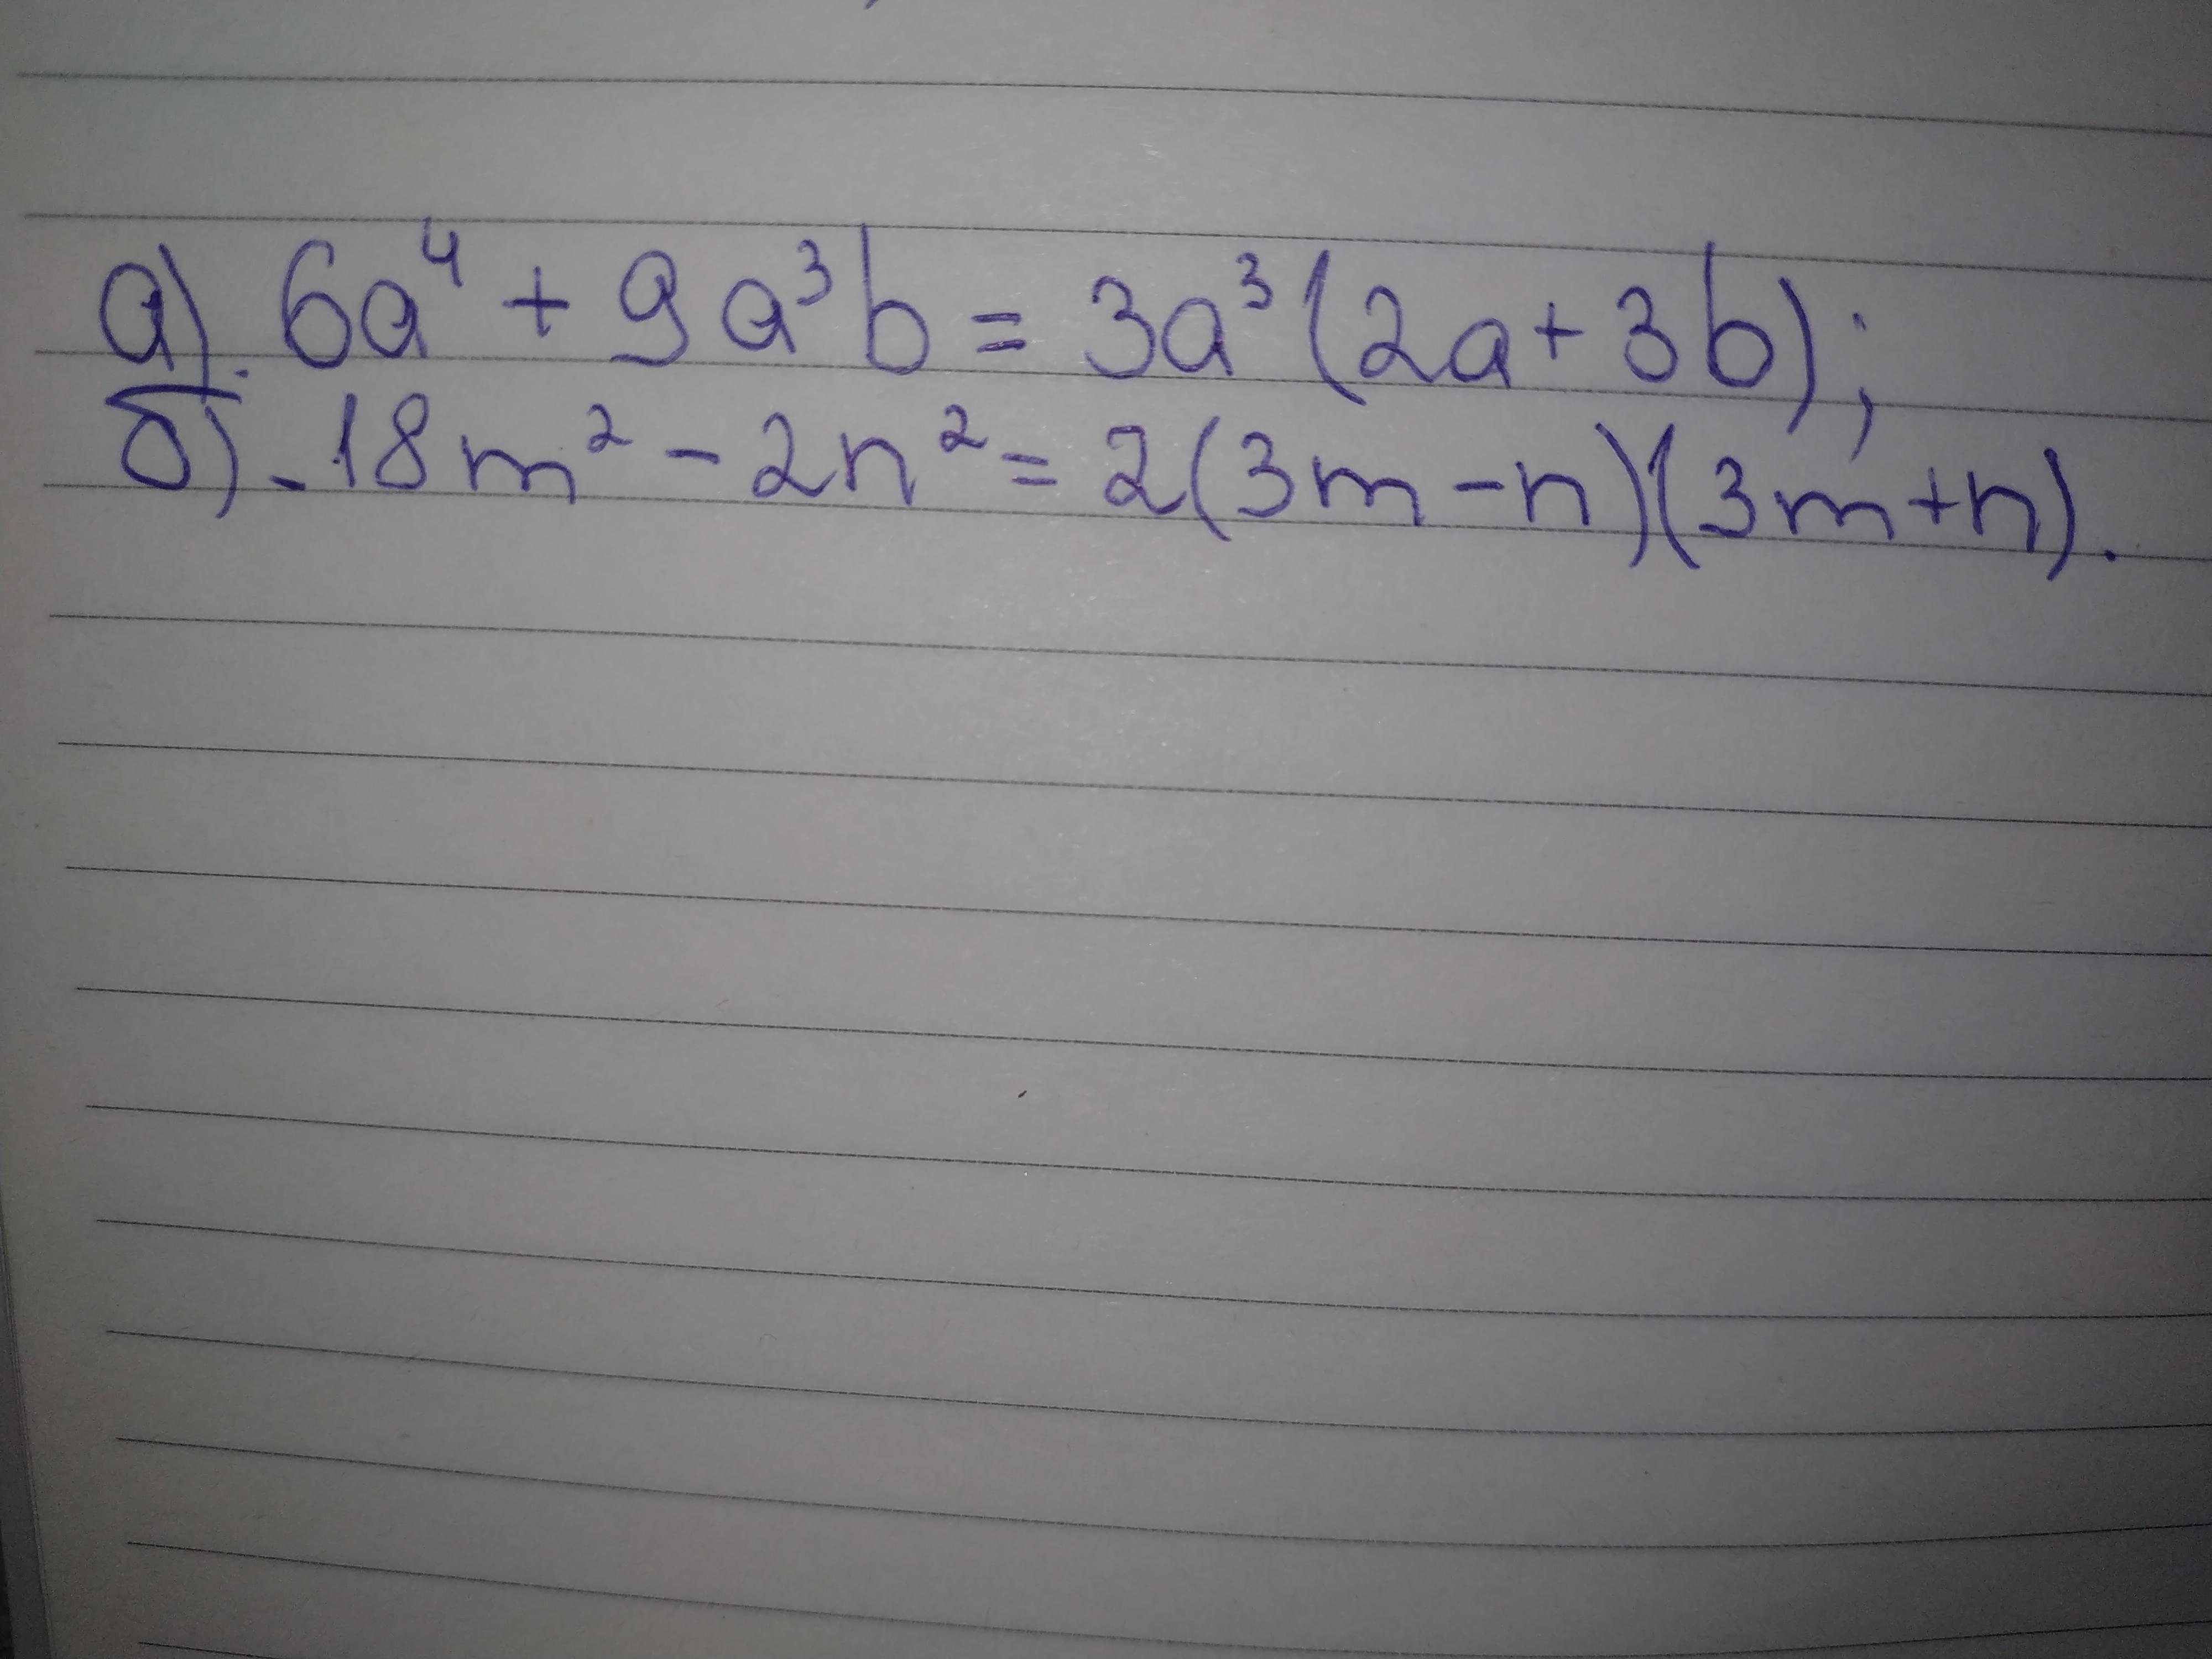 а). 6a⁴ + 9a³b = 3a³(2a+3b);
б). 18m² - 2n² = 2(3m-n)(3m+n).